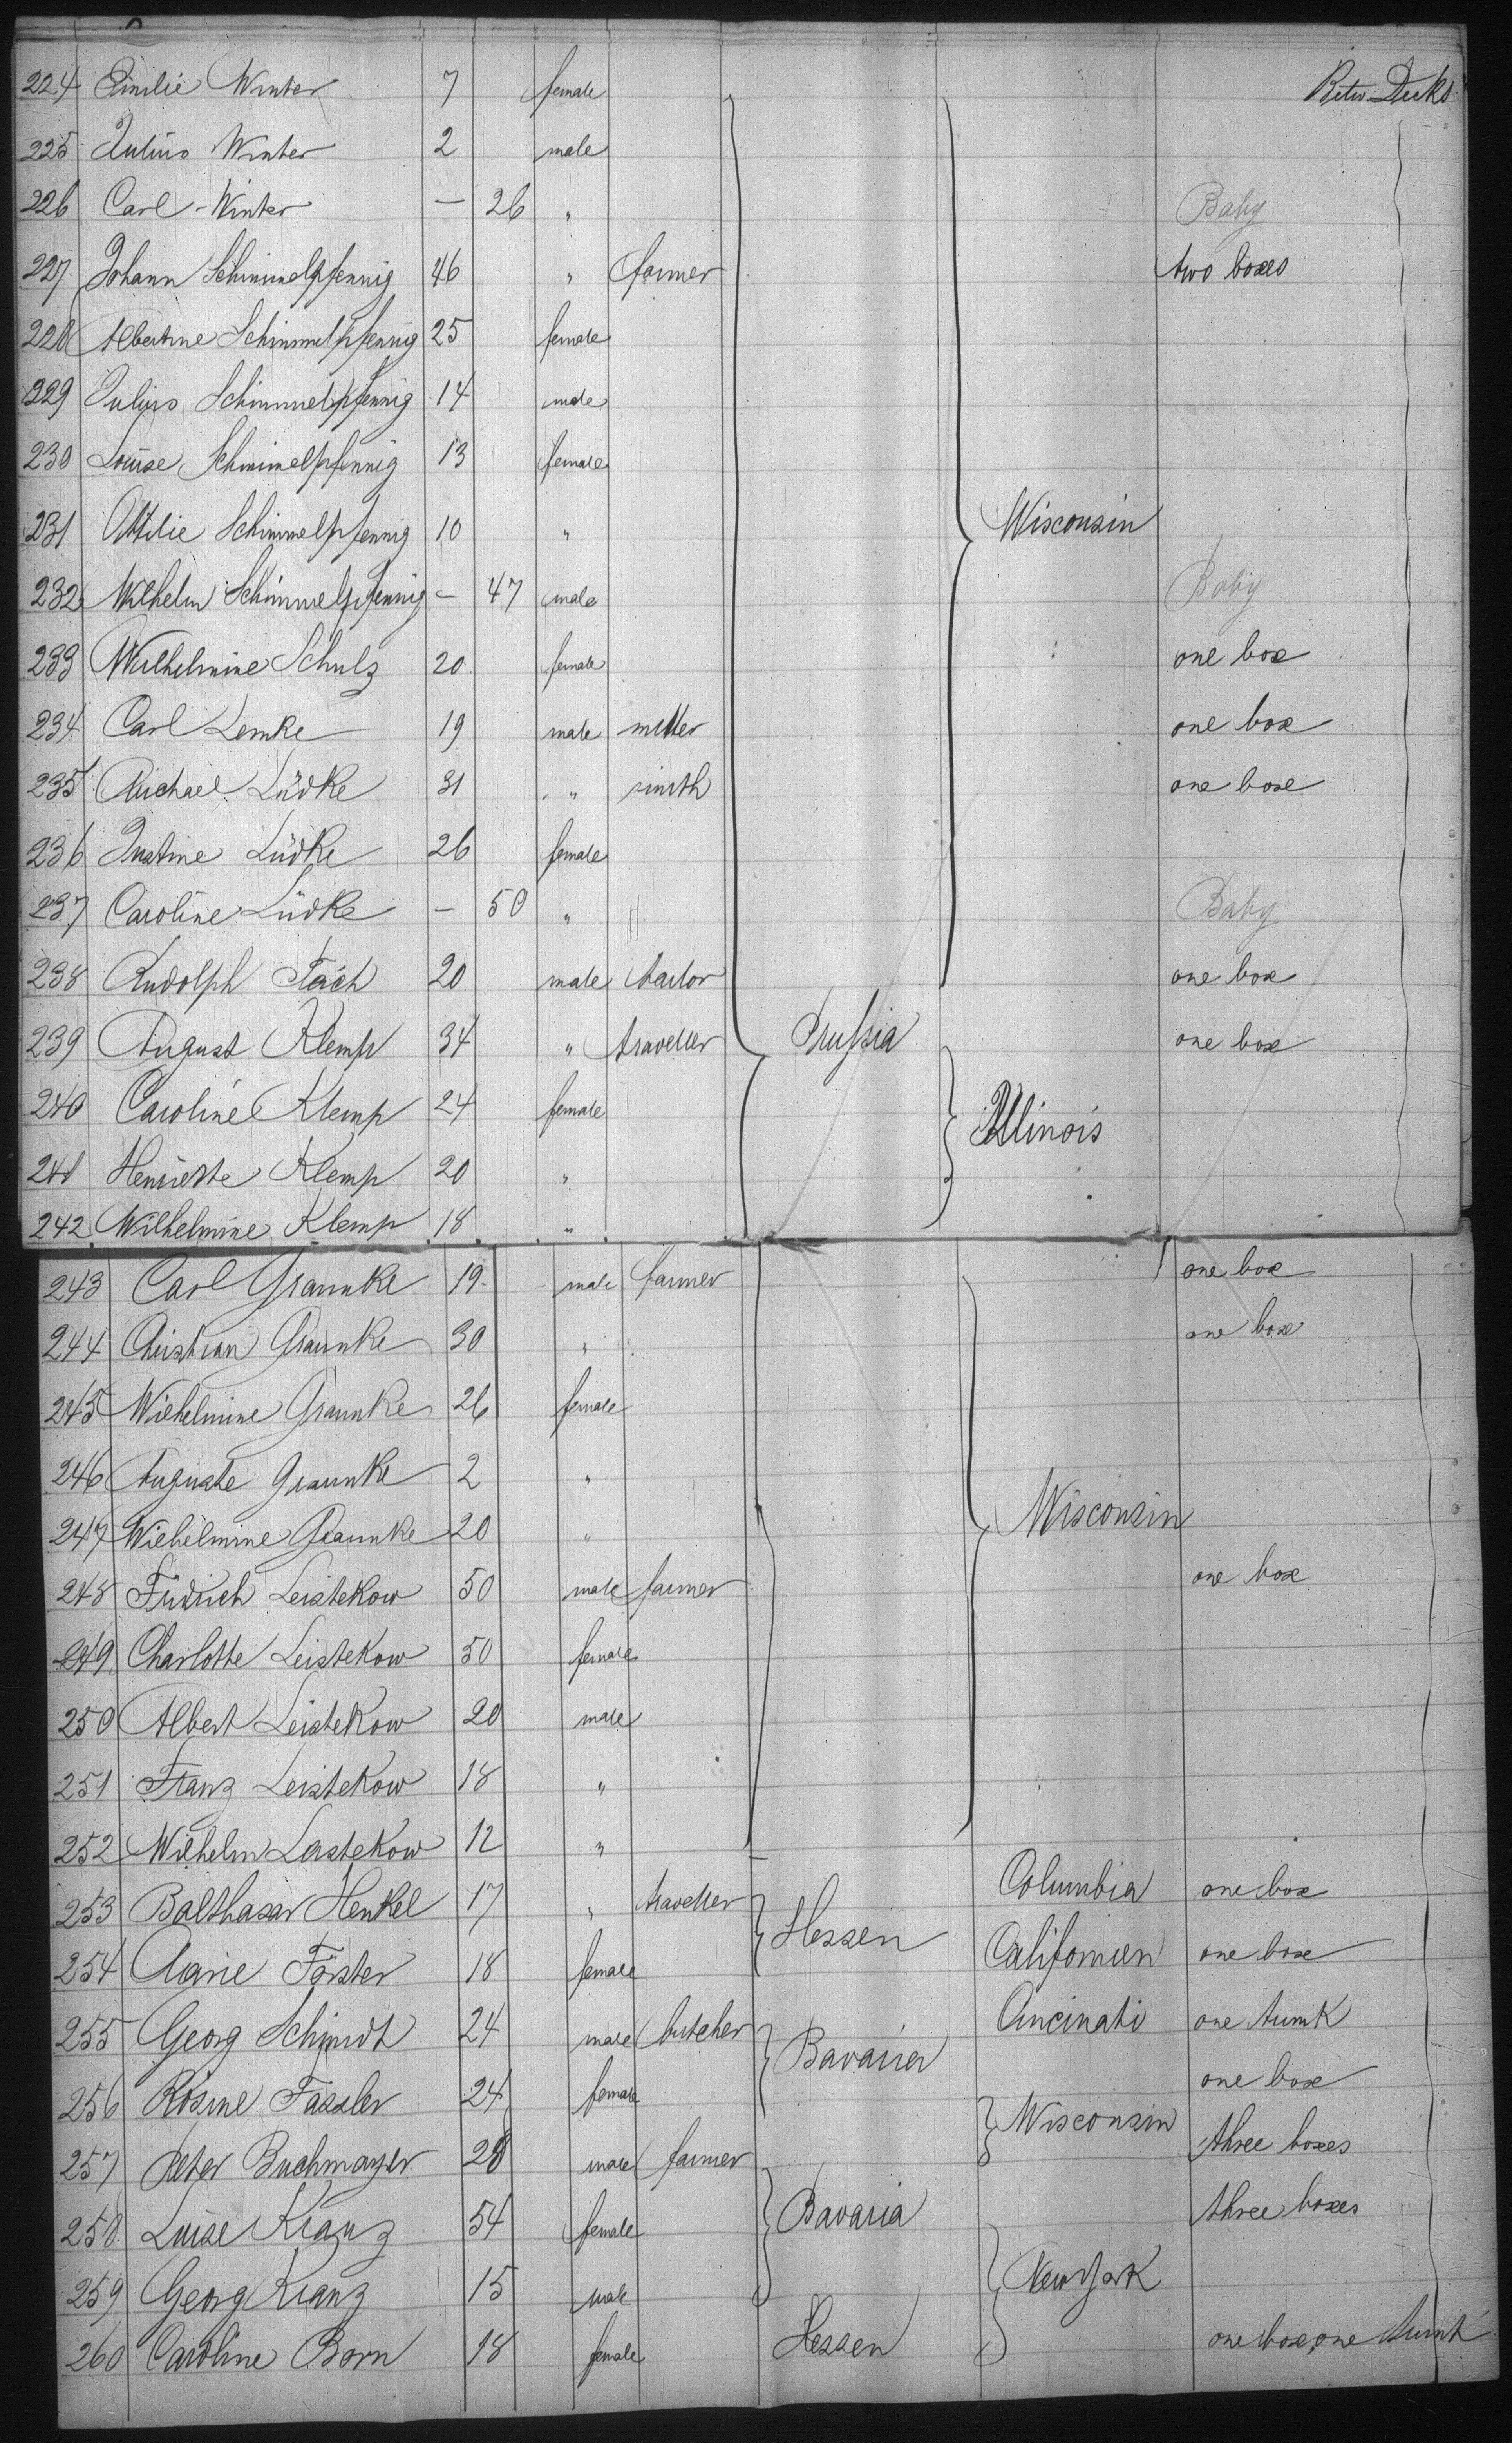 224 Emilie Winter 7 female Betw. Decks
225 Julius Winter 2 male
226 Carl Winter — 26 " Baby
227 Johann Schimmelpfennig 46 " farmer two boxes
228 Albertine Schimmelpfennig 25 female
229 Julius Schimmelpfennig 14 male
230 Louise Schimmelpfennig 13 female
231 Ottilie Schimmelpfennig 10 " Wisconsin
232 Wilhelm Schimmelpfennig — 47 male Baby
233 Wilhelmine Schulz 20 female one box
234 Carl Lemke 19 male miller one box
235 Michael Lüdke 31 " smith one box
236 Justine Lüdke 26 female
237 Caroline Lüdke — 50 " Baby
238 Rudolph Fäch 20 male tailor one box
239 August Klemp 34 " traveller Prussia one box
240 Caroline Klemp 24 female Illinois
241 Henriette Klemp 20 "
242 Wilhelmine Klemp 18 "
243 Carl Graunke 19 male farmer one box
244 Christian Graunke 30 " one box
245 Wilhelmine Graunke 26 female
246 Auguste Graunke 2 "
247 Wilhelmine Graunke 20 " Wisconsin
248 Fridrich Leistekow 50 male farmer one box
249 Charlotte Leistekow 50 female
250 Albert Leistekow 20 male
251 Franz Leistekow 18 "
252 Wilhelm Leistekow 12 "
253 Balthasar Henkel 17 " traveller Hessen Columbia one box
254 Marie Förster 18 female Californien one box
255 Georg Schmidt 24 male butcher Bavaria Cincinati one trunk
256 Rosine Fassler 24 female Wisconsin one box
257 Peter Buchmayer 28 male farmer three boxes
258 Luise Kranz 54 female Bavaria three boxes
259 Georg Kranz 15 male New York
260 Caroline Born 18 female Hessen one box, one trunk